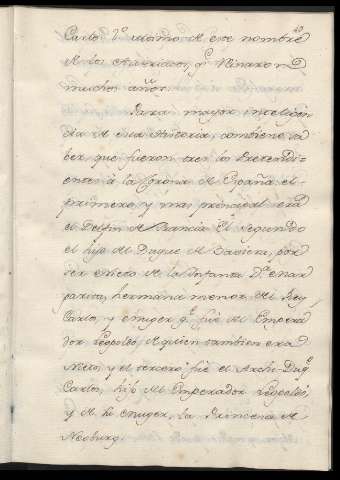 Carlos 2º ultimo de este nombre
de los Austriacos, q.e Vivaron
muchos años.
Para mayor inteligen
cia de esta Historia, combiene sa
ber, que fueron tres los Pretendi
entes à la Corona de España: el
primero, y mas principal era
el Delfin de Francia. El Segundo
el hijo del Duque de Baviera, por
ser Nieto de la Infanta D.ª Mar
garita, hermana menor del Rey
Carlos, y muger q.e fue del Empera
dor Leopoldo, de quien tambien era
Nieto, y el tercero fue el Archi-Duq.e
Carlos, hijo del Emperador Leopoldo,
y de su muger, la Princesa de
Neoburg.